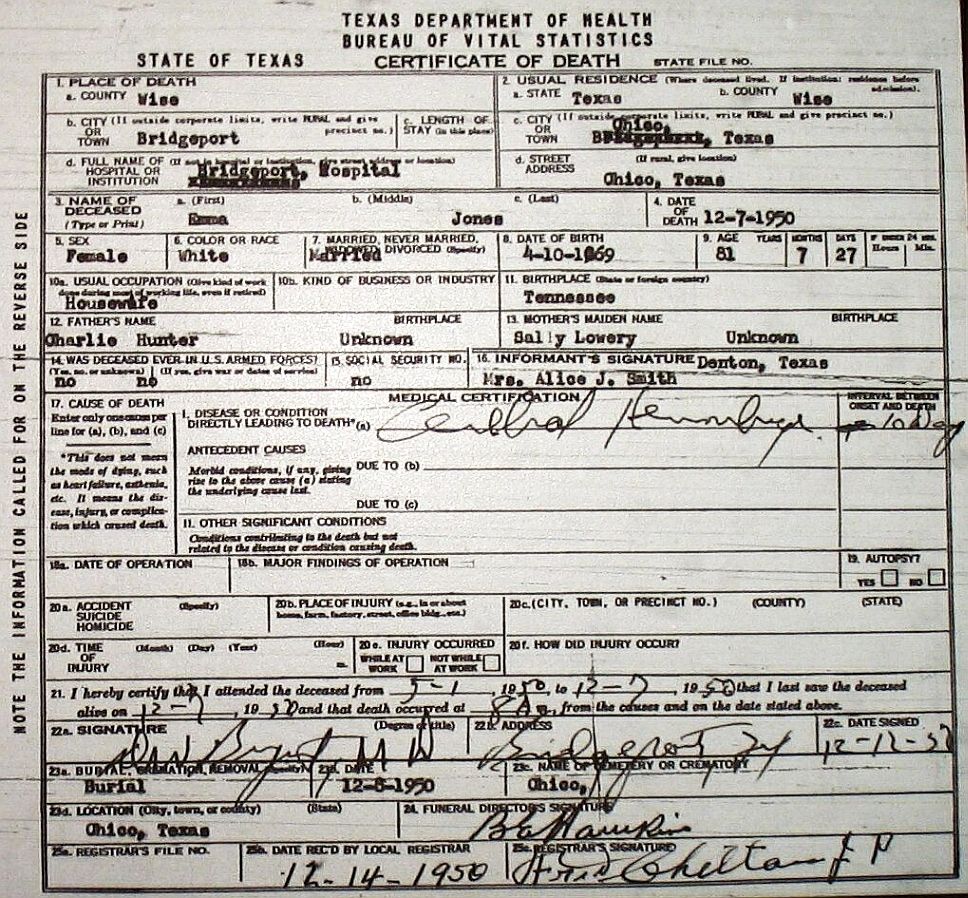 TEXAS DEPARTMENT OF HEALTH
BUREAU OF VITAL STATISTICS
STATE OF TEXAS CERTIFICATE OF DEATH STATE FILE NO.
NOTE THE INFORMATION CALLED FOR ON THE REVERSE SIDE
1. PLACE OF DEATH
a. COUNTY Wise
2. USUAL RESIDENCE (Where deceased lived. If institution: residence before admission).
a. STATE Texas b. COUNTY Wise
b. CITY (If outside corporate limits, write RURAL and give precinct no.)
OR
TOWN Bridgeport
c. LENGTH OF
STAY (in this place)
c. CITY (If outside corporate limits, write RURAL and give precinct no.)
OR
TOWN Chico, Texas
d. FULL NAME OF (If not in hospital or institution, give street address or location)
HOSPITAL OR
INSTITUTION Bridgeport, Hospital
d. STREET (If rural, give location)
ADDRESS
Chico, Texas
3. NAME OF a. (First) b. (Middle) c. (Last)
DECEASED
(Type or Print) Emma Jones
4. DATE
OF
DEATH 12-7-1950
5. SEX
Female
6. COLOR OR RACE
White
7. MARRIED, NEVER MARRIED,
WIDOWED DIVORCED (Specify)
Married
8. DATE OF BIRTH
4-10-1869
9. AGE YEARS MONTHS DAYS IF UNDER 24 HRS.
Hours Min.
81 7 27
10a. USUAL OCCUPATION (Give kind of work
done during most of working life, even if retired)
Housewife
10b. KIND OF BUSINESS OR INDUSTRY
11. BIRTHPLACE (State or foreign country)
Tennessee
12. FATHER'S NAME BIRTHPLACE
Charlie Hunter Unknown
13. MOTHER'S MAIDEN NAME BIRTHPLACE
Sally Lowery Unknown
14. WAS DECEASED EVER IN U.S. ARMED FORCES?
(Yes, no, or unknown) (If yes, give war or dates of service)
no no
15. SOCIAL SECURITY NO.
no
16. INFORMANT'S SIGNATURE Denton, Texas
Mrs. Alice J. Smith
MEDICAL CERTIFICATION
17. CAUSE OF DEATH
Enter only one cause per
line for (a), (b), and (c)
*This does not mean
the mode of dying, such
as heart failure, asthenia,
etc. It means the dis-
ease, injury, or complica-
tion which caused death.
I. DISEASE OR CONDITION
DIRECTLY LEADING TO DEATH*(a) Cerebral Hemorrhage
INTERVAL BETWEEN
ONSET AND DEATH
10 Day
ANTECEDENT CAUSES
Morbid conditions, if any, giving
rise to the above cause (a) stating
the underlying cause last.
DUE TO (b)
DUE TO (c)
II. OTHER SIGNIFICANT CONDITIONS
Conditions contributing to the death but not
related to the disease or condition causing death.
18a. DATE OF OPERATION
18b. MAJOR FINDINGS OF OPERATION
19. AUTOPSY?
YES NO
20a. ACCIDENT (Specify)
SUICIDE
HOMICIDE
20b. PLACE OF INJURY (e.g., in or about
home, farm, factory, street, office bldg., etc.)
20c. (CITY, TOWN, OR PRECINCT NO.) (COUNTY) (STATE)
20d. TIME (Month) (Day) (Year) (Hour)
OF
INJURY m.
20e. INJURY OCCURRED
WHILE AT
WORK
NOT WHILE
AT WORK
20f. HOW DID INJURY OCCUR?
21. I hereby certify that I attended the deceased from 5-1, 1950, to 12-7, 1950 that I last saw the deceased
alive on 12-7, 1950 and that death occurred at 8 A m., from the causes and on the date stated above.
22a. SIGNATURE (Degree or title)
Bryant M D
22b. ADDRESS
Bridgeport Tex
22c. DATE SIGNED
12-12-50
23a. BURIAL, CREMATION, REMOVAL (Specify)
Burial
23b. DATE
12-8-1950
23c. NAME OF CEMETERY OR CREMATORY
Chico,
23d. LOCATION (City, town, or county) (State)
Chico, Texas
24. FUNERAL DIRECTOR'S SIGNATURE
Hawkins
25a. REGISTRAR'S FILE NO.
25b. DATE REC'D BY LOCAL REGISTRAR
12-14-1950
25c. REGISTRAR'S SIGNATURE
Chilton J P